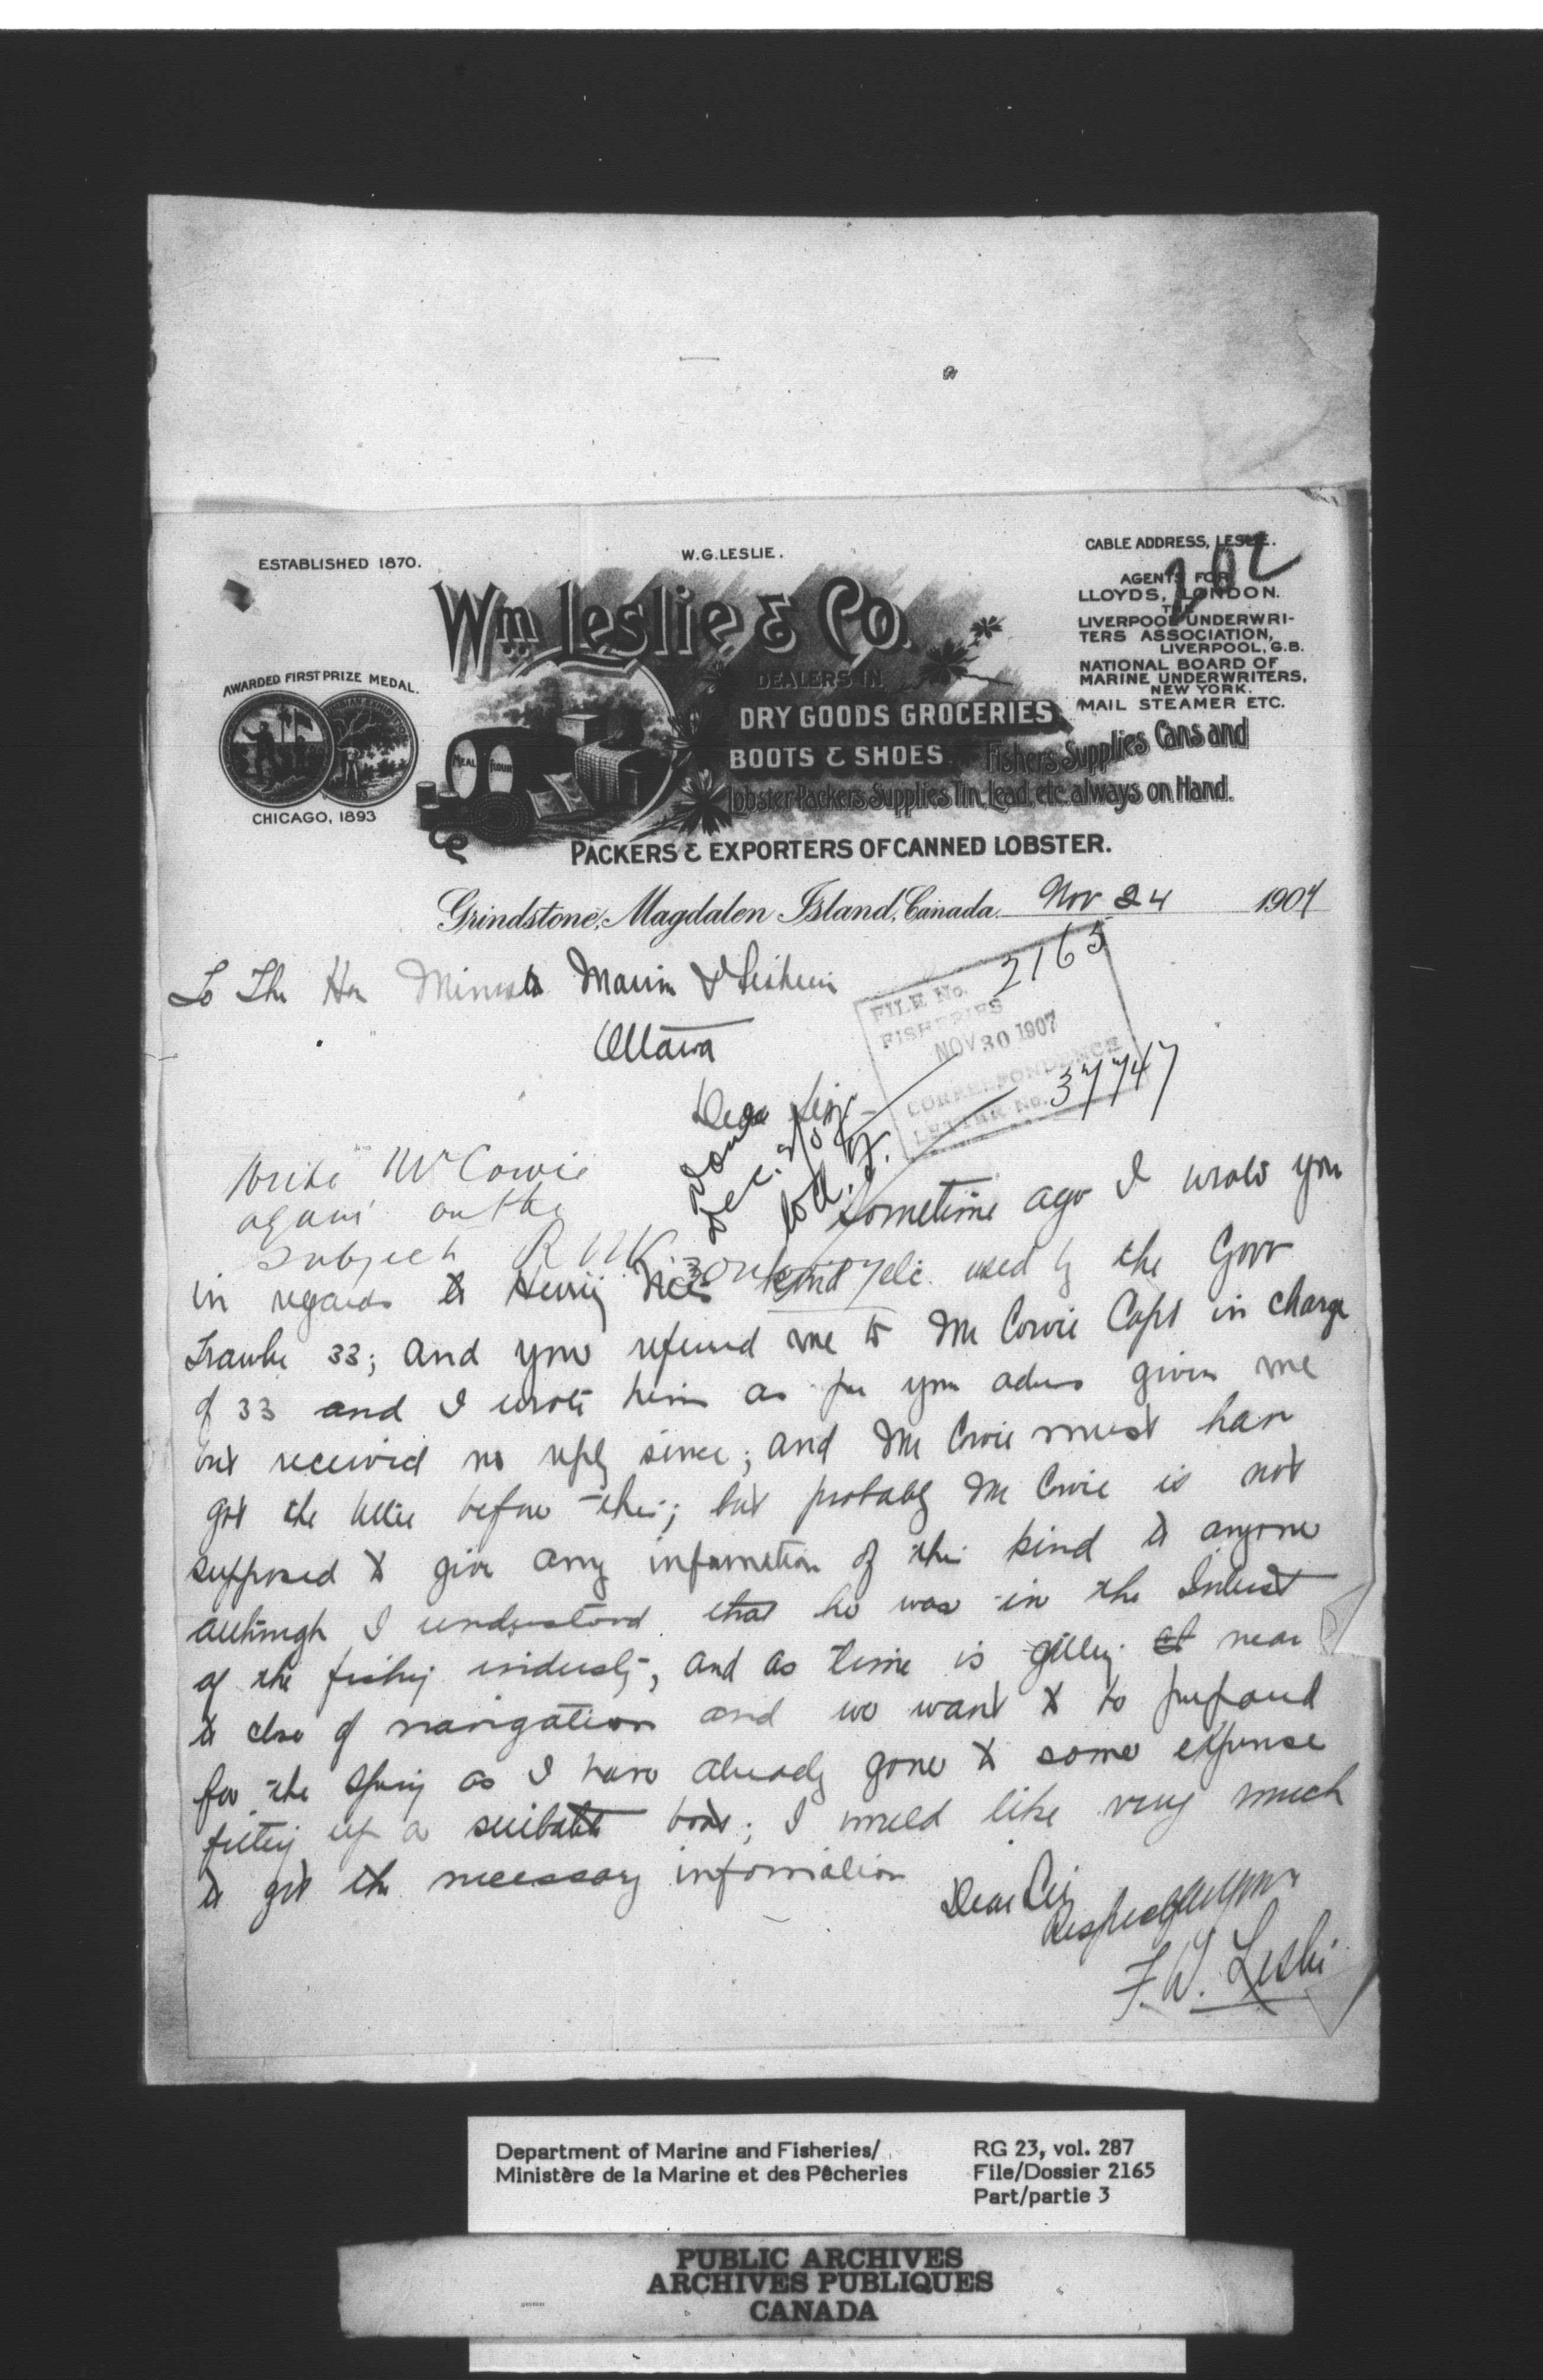 202
ESTABLISHED 1870.
W. G. LESLIE.
CABLE ADDRESS, LESLIE.
Wm. Leslie & Co.
AGENTS FOR
LLOYDS, LONDON.
THE
LIVERPOOL UNDERWRI-
TERS ASSOCIATION,
LIVERPOOL, G.B.
NATIONAL BOARD OF
MARINE UNDERWRITERS,
NEW YORK.
MAIL STEAMER ETC.
AWARDED FIRST PRIZE MEDAL.
CHICAGO, 1893
MEAL FLOUR
DEALERS IN
DRY GOODS GROCERIES
BOOTS & SHOES Fishers Supplies Cans and
Lobster Packers Supplies Tin, Lead, etc. always on Hand.
PACKERS & EXPORTERS OF CANNED LOBSTER.
Grindstone, Magdalen Island, Canada. Nov 24 1907
To The Hon Minister Marine & Fisheries
Ottawa
FILE No. 2165
FISHERIES
NOV 30 1907
CORRESPONDENCE
LETTER No. 37747
Dear Sir
Write Mr Cowie
again on the
subject R N V
Done
Dec. 2/07
Sometime ago I wrote you
in regards to Herring Nets kind etc. used by the Govr
Trawler 33; and you referred me to Mr Cowie Capt in charge
of 33 and I wrote him as per your adress given me
but received no reply since; and Mr Cowie must have
got the letter before this; but probably Mr Cowie is not
supposed to give any information of this kind to anyone
although I understood that he was in the Interest
of the fishing industry, and as time is getting near
to close of navigation and we want to prepared
for the Spring as I have already gone to some expense
fitting up a suitable boat; I would like very much
to get the necessary information
Dear Sir
Respectfully yours
F. W. Leslie
Department of Marine and Fisheries/
Ministère de la Marine et des Pêcheries
RG 23, vol. 287
File/Dossier 2165
Part/partie 3
PUBLIC ARCHIVES
ARCHIVES PUBLIQUES
CANADA